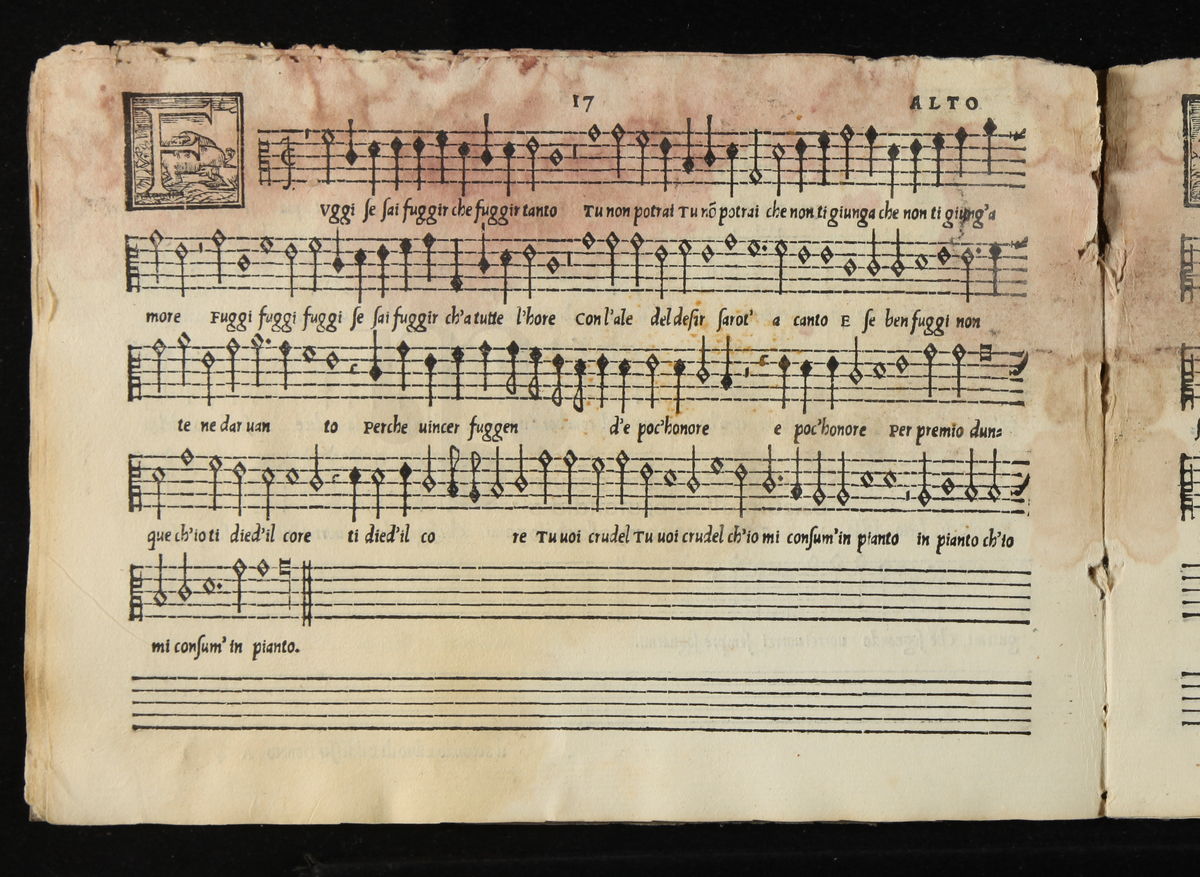 17 ALTO
FVggi se sai fuggir che fuggir tanto Tu non potrai Tu nõ potrai che non ti giunga che non ti giung'a
more Fuggi fuggi fuggi se sai fuggir ch'a tutte l'hore Con l'ale del desir sarot' a canto E se ben fuggi non
te ne dar uan to Perche uincer fuggen d'e poc'honore e poc'honore Per premio dun=
que ch'io ti died'il core ti died'il co re Tu uoi crudel Tu uoi crudel ch'io mi consum'in pianto in pianto ch'io
mi consum' in pianto.